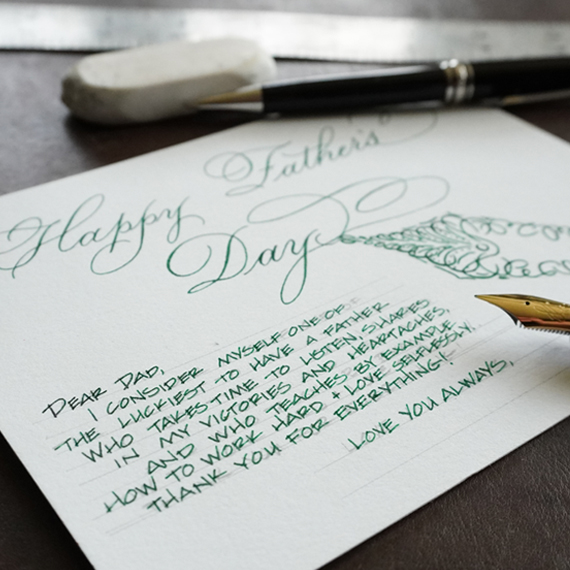 Happy Father's
Day
DEAR DAD,
I CONSIDER MYSELF ONE OF
THE LUCKIEST TO HAVE A FATHER
WHO TAKES TIME TO LISTEN, SHARES
IN MY VICTORIES AND HEARTACHES,
AND WHO TEACHES BY EXAMPLE
HOW TO WORK HARD + LOVE SELFLESSLY.
THANK YOU FOR EVERYTHING!
LOVE YOU ALWAYS,